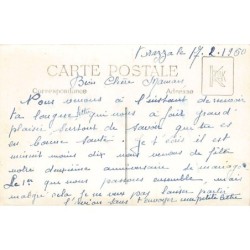 le 17.2.1950
CARTE POSTALE
Correspondance Adresse
Bien Chère Maman
Nous avons à l'instant de recevoir
ta longue lettre qui nous a fait grand
plaisir surtout de savoir que tu es
en bonne santé. Je t'écris il est
minuit moins dix nous venons de fêter
notre deuxième anniversaire de mariage
Le 1er que nous passons ensemble, mais
malgré cela je ne veux pas laisser partir
l'avion sans t'envoyer ma petite lettre